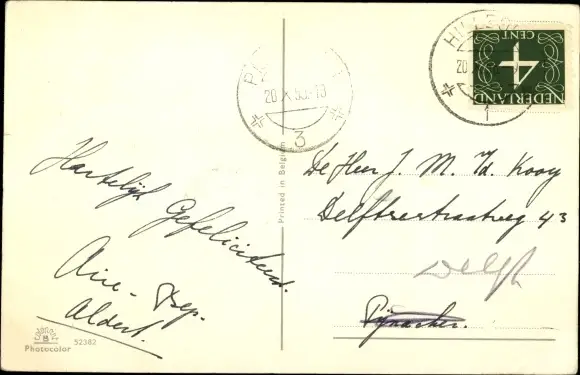 Hartelijk Gefeliciteerd.
Arie - Bep.
Aldert.
Photocolor
52382
Printed in Belgium
20 X 53 - 13
3
HILLEGOM
20 X
1
4
CENT
NEDERLAND
De Heer J. M. v.d. Kooy
Delftsestraatweg 43
Delft
Pijnacker.